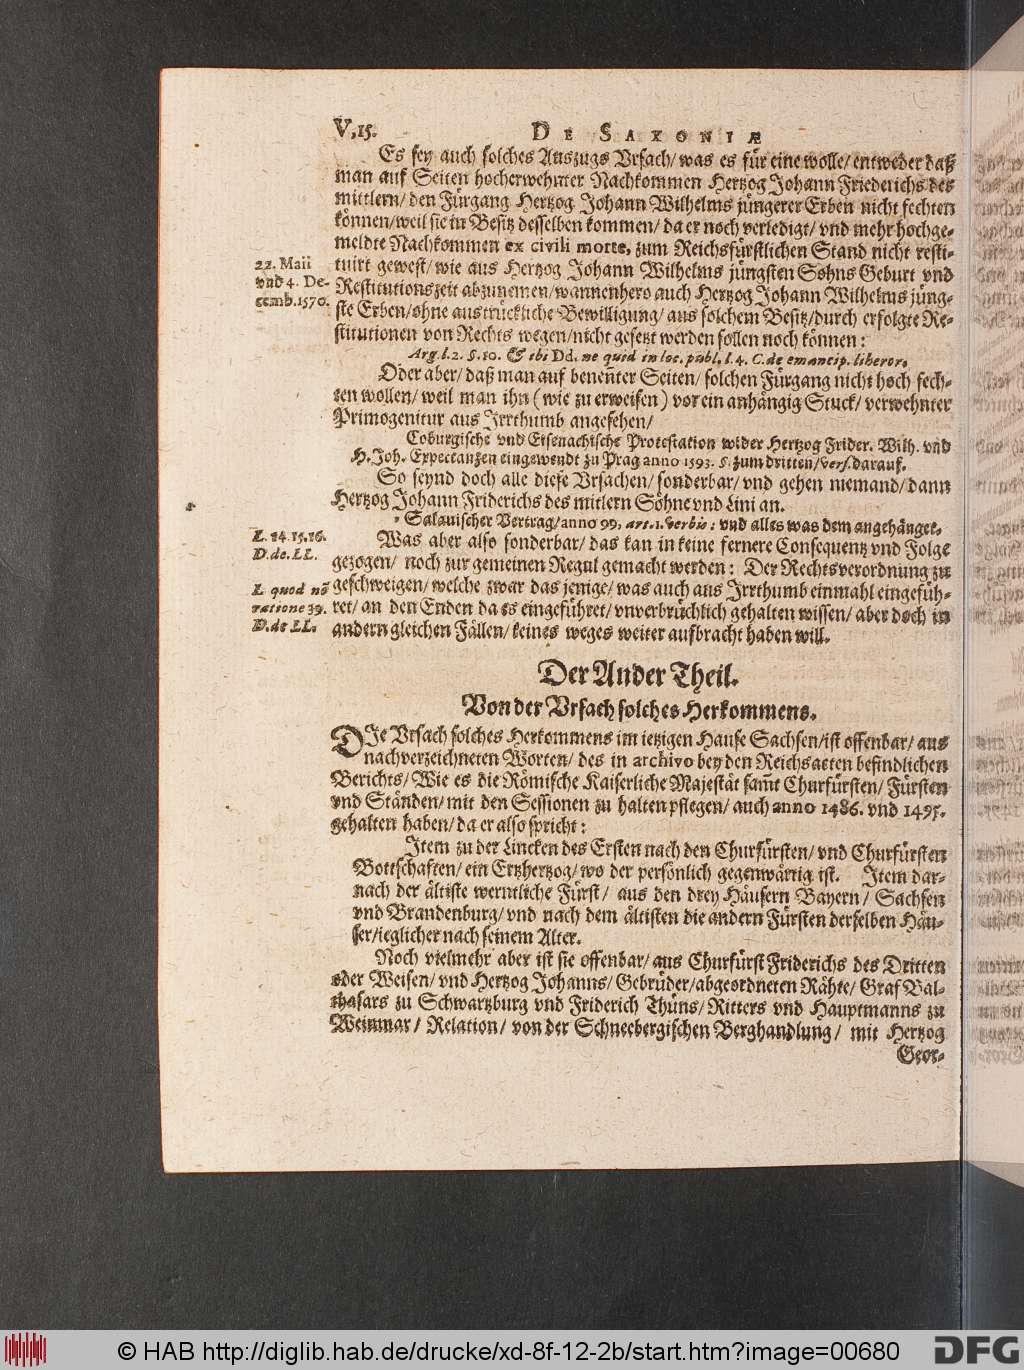 V, 15. DE SAXONIÆ
Es sey auch solches Auszugs Vrsach/ was es für eine wolle/ entweder daß
man auf Seiten hocherwehnter Nachkommen Hertzog Johann Friederichs des
mittlern/ den Fürgang Hertzog Johann Wilhelms jüngerer Erben nicht fechten
können/ weil sie in Besitz desselben kommen/ da er noch verledigt/ vnd mehr hochge-
meldte Nachkommen ex civili morte, zum Reichsfürstlichen Stand nicht resti-
22. Maii
vnd 4. De-
cemb. 1570.
tuirt gewest/ wie aus Hertzog Johann Wilhelms jüngsten Sohns Geburt vnd
Restitutionszeit abzunemen/ wannenhero auch Hertzog Johann Wilhelms jüng-
ste Erben/ ohne ausdruckliche Bewilligung/ aus solchem Besitz/ durch erfolgte Re-
stitutionen von Rechts wegen/ nicht gesetzt werden sollen noch können:
Arg. l. 2. §. 10. & ibi Dd. ne quid in loc. publ. l. 4. C. de emancip. liberor.
Oder aber/ daß man auf beneñter Seiten/ solchen Fürgang nicht hoch fech-
ten wollen/ weil man ihn (wie zu erweisen) vor ein anhängig Stuck/ verwehnter
Primogenitur aus Irrthumb angesehen/
Coburgische vnd Eisenachische Protestation wider Hertzog Frider. Wilh. vnd
H. Joh. Expectanzen eingewendt zu Prag anno 1593. §. zum dritten/ vers. darauf.
So seynd doch alle diese Vrsachen/ sonderbar/ vnd gehen niemand/ dann
Hertzog Johann Friderichs des mitlern Söhne vnd Lini an.
Salauischer Vertrag/ anno 99. art. 1. verbis: vnd alles was dem angehänget.
L. 14. 15. 16.
D. de. LL.
L. quod nõ
ratione 39.
D. de LL.
Was aber also sonderbar/ das kan in keine fernere Consequentz vnd Folge
gezogen/ noch zur gemeinen Regul gemacht werden: Der Rechtsverordnung zu
geschweigen/ welche zwar das jenige/ was auch aus Irrthumb einmahl eingefüh-
ret/ an den Enden da es eingeführet/ vnverbrüchlich gehalten wissen/ aber doch in
andern gleichen Fällen/ keines weges weiter aufbracht haben will.
Der Ander Theil.
Von der Vrsach solches Herkommens.
DIe Vrsach solches Herkommens im ietzigen Hause Sachsen/ ist offenbar/ aus
nachverzeichneten Worten/ des in archivo bey den Reichsacten befindlichen
Berichts/ Wie es die Römische Kaiserliche Majestät sam̃t Churfürsten/ Fürsten
vnd Ständen/ mit den Sessionen zu halten pflegen/ auch anno 1486. vnd 1495.
gehalten haben/ da er also spricht:
Item zu der Lincken des Ersten nach den Churfürsten/ vnd Churfürsten
Bottschaften/ ein Ertzhertzog/ wo der persönlich gegenwärtig ist. Item dar-
nach der ältiste werntliche Fürst/ aus den drey Häusern Bayern/ Sachsen
vnd Brandenburg/ vnd nach dem ältisten die andern Fürsten derselben Häu-
ser/ ieglicher nach seinem Alter.
Noch vielmehr aber ist sie offenbar/ aus Churfürst Friderichs des Dritten
oder Weisen/ vnd Hertzog Johanns/ Gebrüder/ abgeordneten Rähte/ Graf Bal-
thasars zu Schwartzburg vnd Friderich Thüns/ Ritters vnd Hauptmanns zu
Weinmar/ Relation/ von der Schneebergischen Berghandlung/ mit Hertzog
Geor-
© HAB http://diglib.hab.de/drucke/xd-8f-12-2b/start.htm?image=00680
DFG